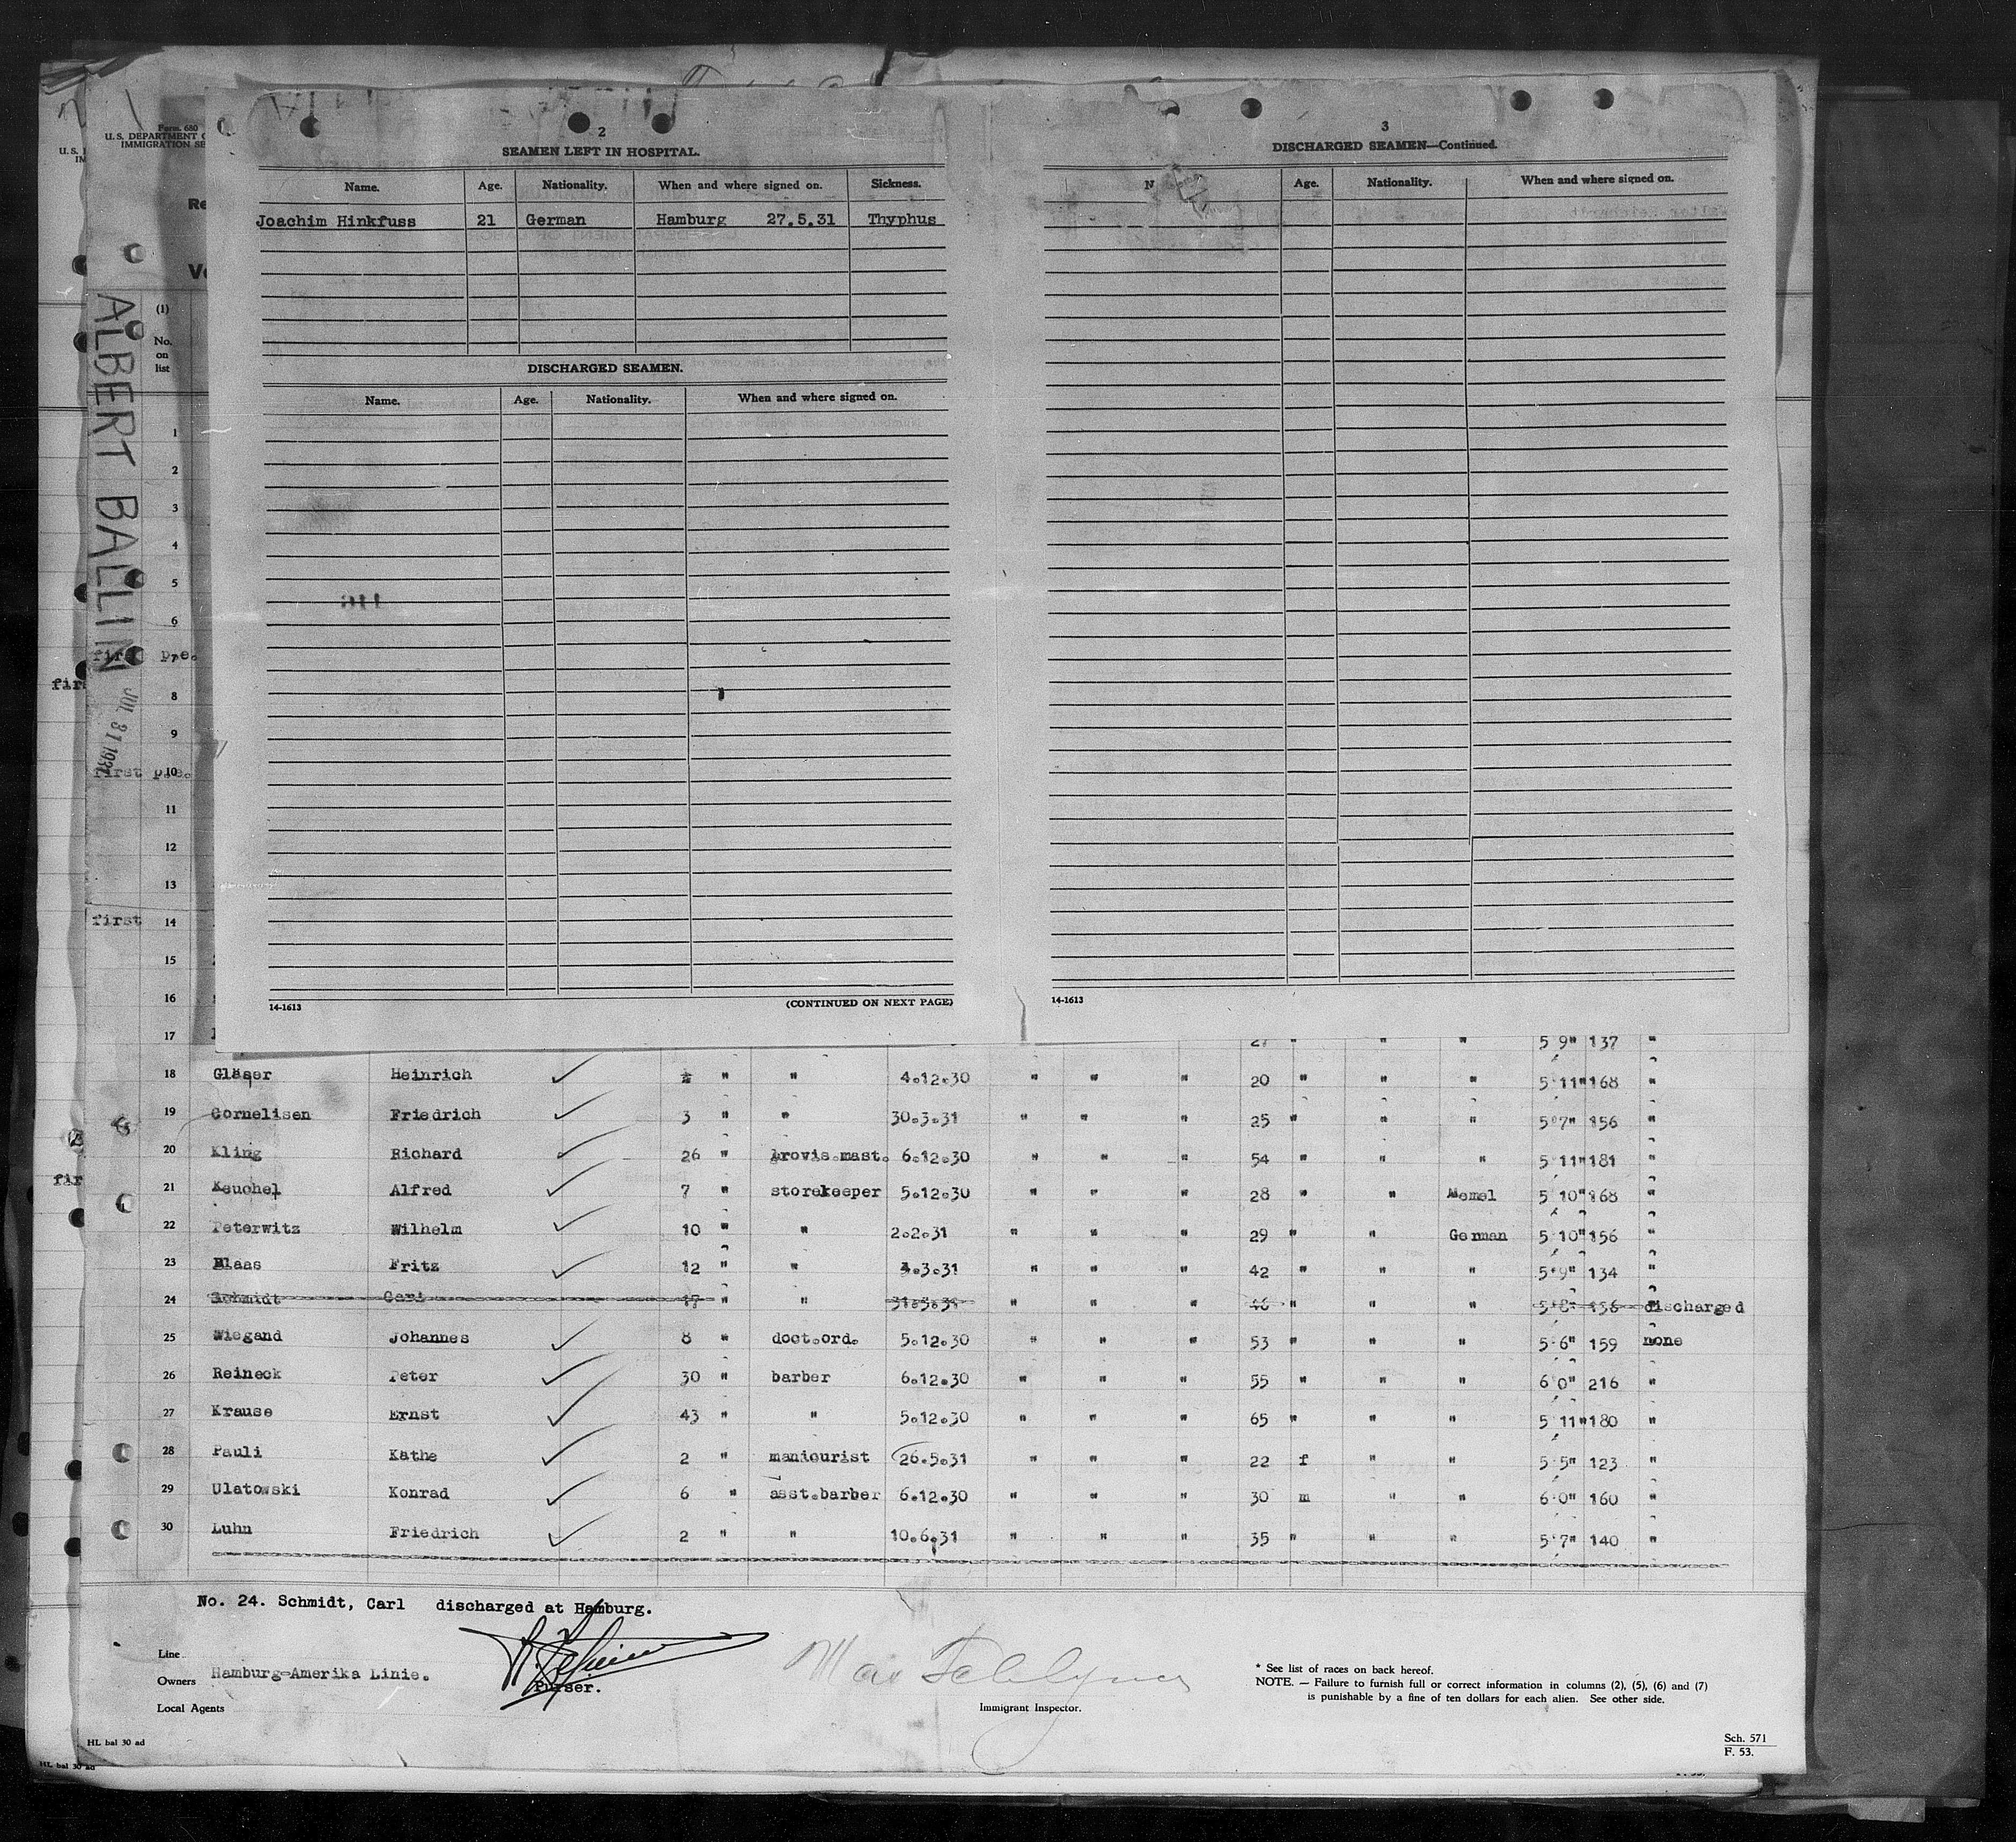 Form 680
U. S. DEPARTMENT
IMMIGRATION SE
ALBERT BALLIN
JUL 31 1931
(1)
No.
on
list
2
SEAMEN LEFT IN HOSPITAL.
Name. Age. Nationality. When and where signed on. Sickness.
Joachim Hinkfuss 21 German Hamburg 27.5.31 Thyphus
DISCHARGED SEAMEN.
Name. Age. Nationality. When and where signed on.
14-1613 (CONTINUED ON NEXT PAGE)
3
DISCHARGED SEAMEN—Continued.
Age. Nationality. When and where signed on.
14-1613
1
2
3
4
5
6
first p.e. 7
8
9
first p.e. 10
11
12
13
first 14
15
16
17 27 " " " 5'9" 137 "
18 Gläser Heinrich " " 4.12.30 " " " 20 " " " 5'11" 168 "
19 Cornelisen Friedrich 3 " " 30.3.31 " " " 25 " " " 5'7" 156 "
20 Kling Richard 26 " provis.mast. 6.12.30 " " " 54 " " " 5'11" 181 "
21 Keuchel Alfred 7 " storekeeper 5.12.30 " " " 28 " " Memel 5'10" 168 "
22 Peterwitz Wilhelm 10 " " 2.2.31 " " " 29 " " German 5'10" 156 "
23 Blaas Fritz 12 " " 4.3.31 " " " 42 " " " 5'9" 134 "
24 Schmidt Carl 17 " " 31.5.31 " " " 46 " " " 5'8" 156 discharged
25 Wiegand Johannes 8 " doct.ord. 5.12.30 " " " 53 " " " 5'6" 159 none
26 Reineck Peter 30 " barber 6.12.30 " " " 55 " " " 6'0" 216 "
27 Krause Ernst 43 " " 5.12.30 " " " 65 " " " 5'11" 180 "
28 Pauli Kathe 2 " manicurist 26.5.31 " " " 22 f " " 5'5" 123 "
29 Ulatowski Konrad 6 " asst.barber 6.12.30 " " " 30 m " " 6'0" 160 "
30 Luhn Friedrich 2 " " 10.6.31 " " " 35 " " " 5'7" 140 "
No. 24. Schmidt, Carl discharged at Hamburg.
Line
Owners Hamburg-Amerika Linie.
Local Agents
Purser.
Immigrant Inspector.
* See list of races on back hereof.
NOTE. — Failure to furnish full or correct information in columns (2), (5), (6) and (7)
is punishable by a fine of ten dollars for each alien. See other side.
HL bal 30 ad
HL bal 30 ad
Sch. 571
F. 53.